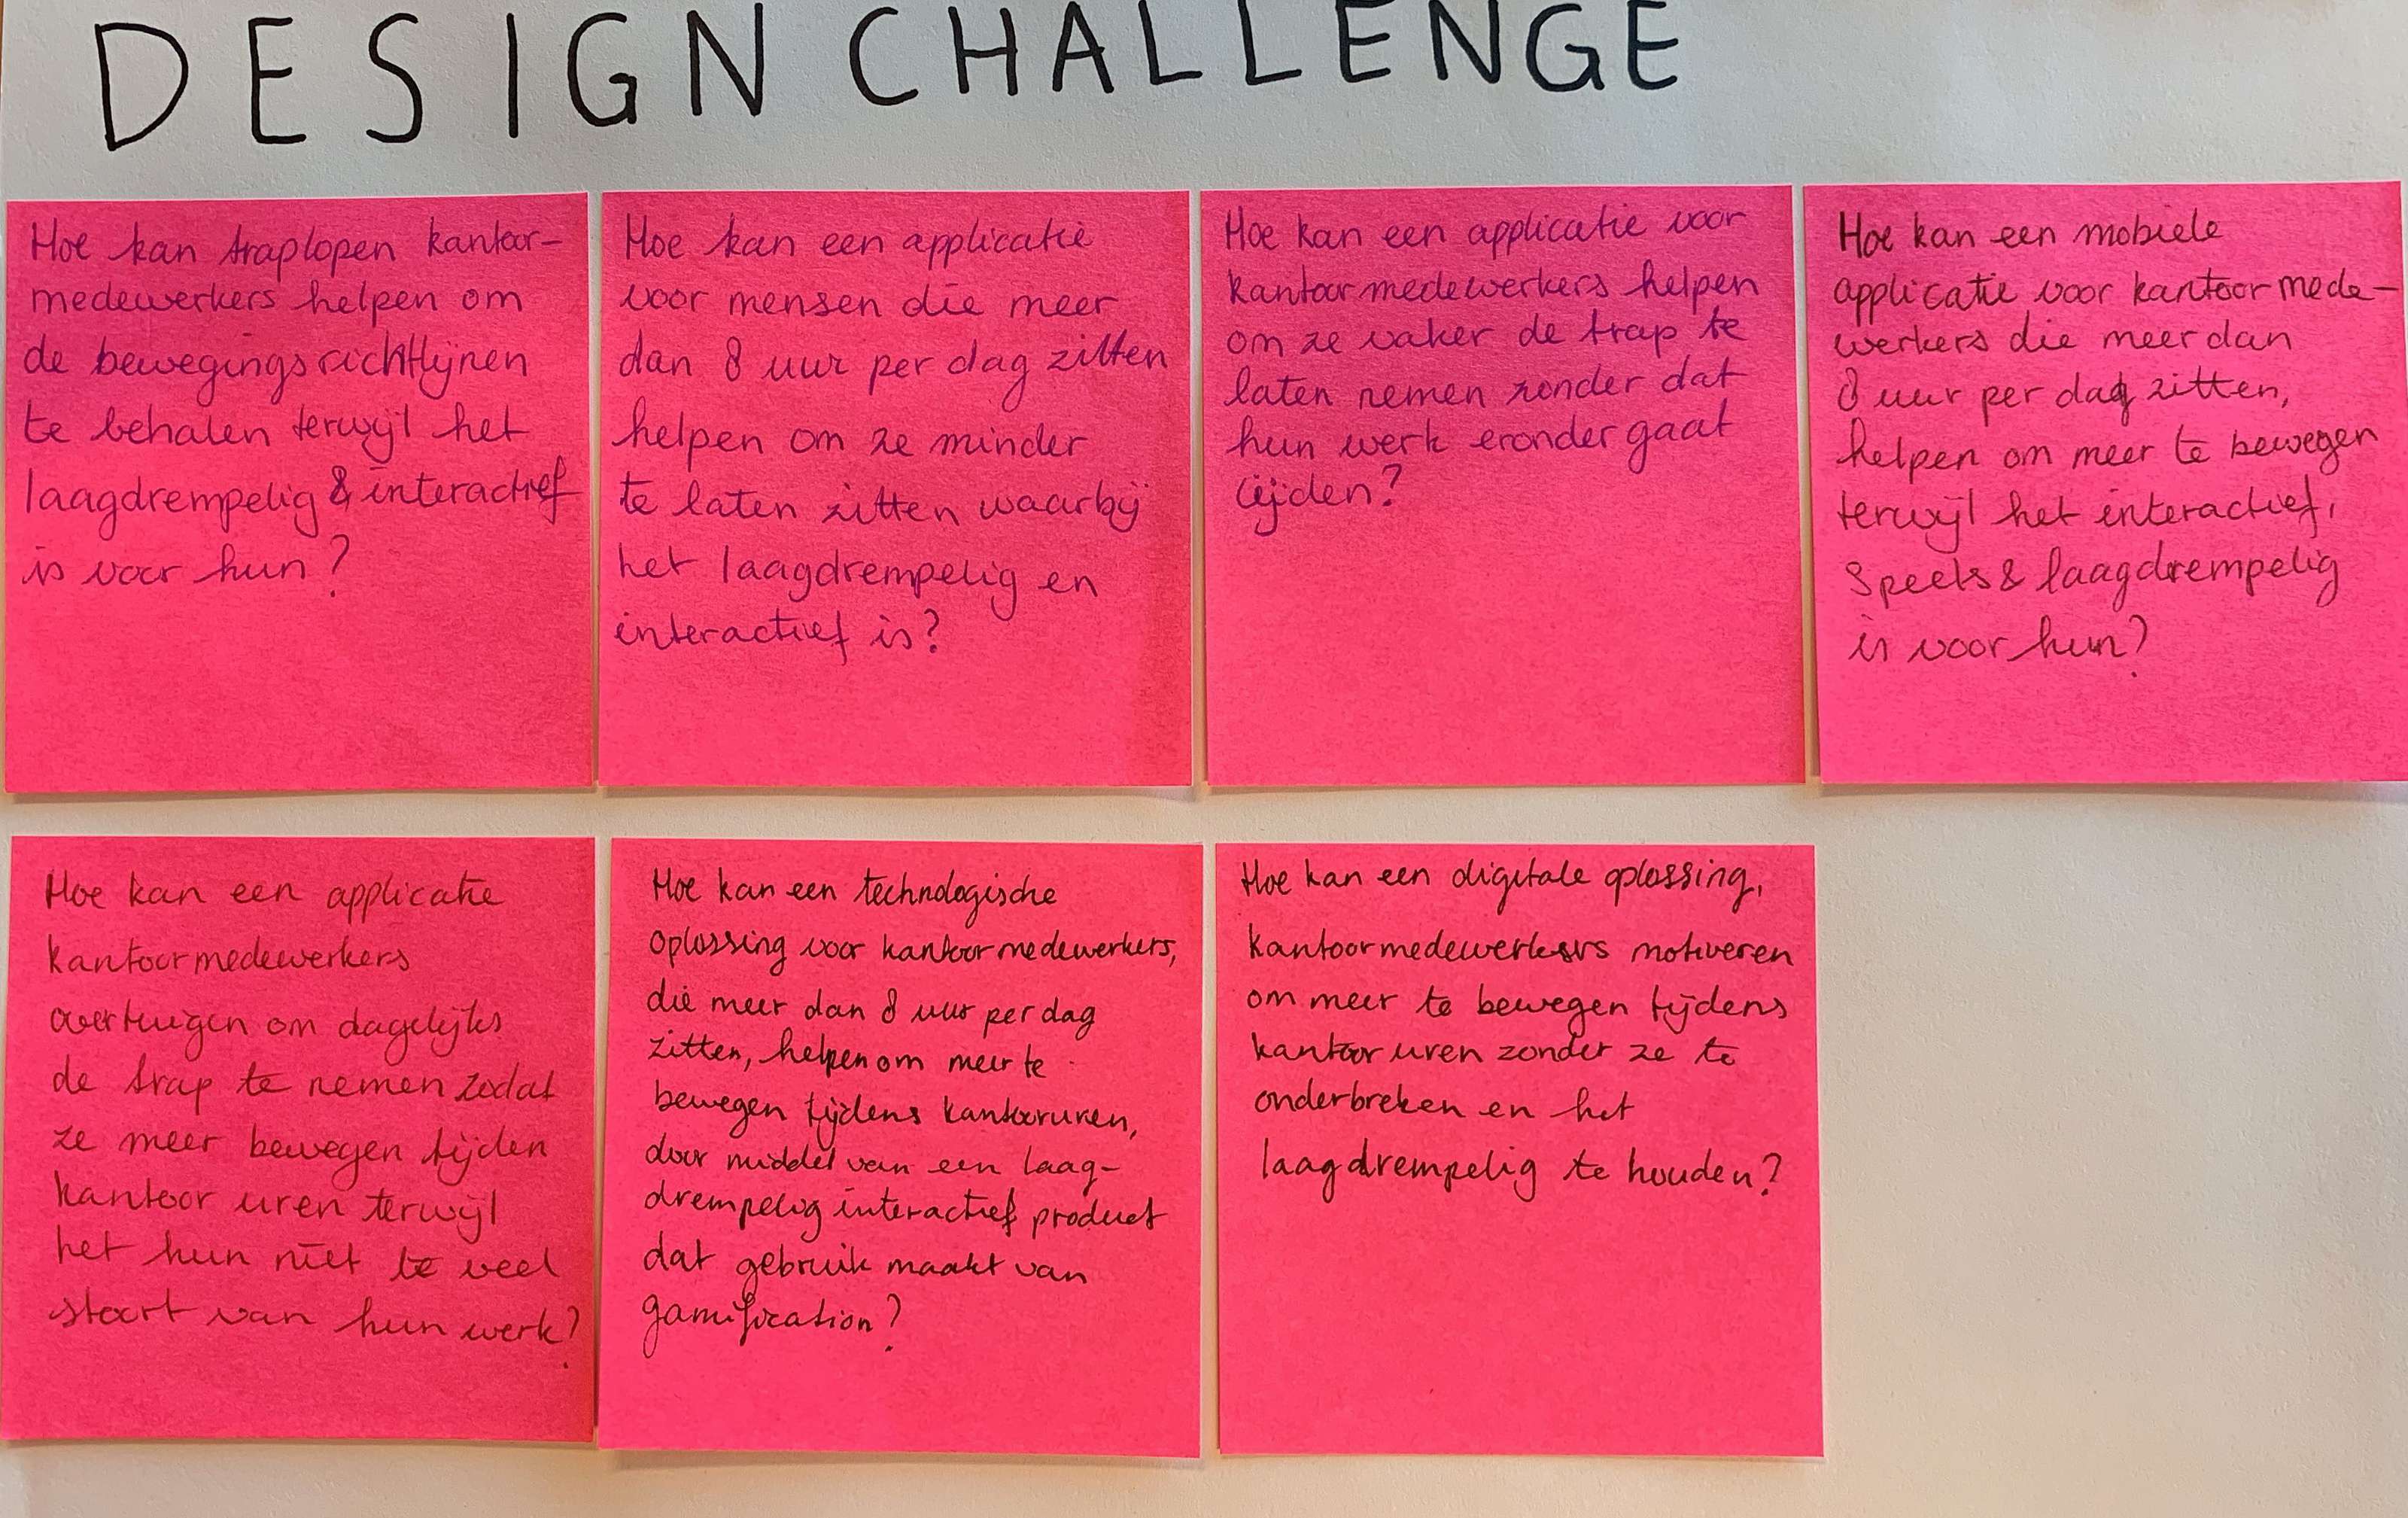 DESIGN CHALLENGE
Hoe kan traplopen kantoor-
medewerkers helpen om
de bewegingsrichtlijnen
te behalen terwijl het
laagdrempelig & interactief
is voor hun?
Hoe kan een applicatie
voor mensen die meer
dan 8 uur per dag zitten
helpen om ze minder
te laten zitten waarbij
het laagdrempelig en
interactief is?
Hoe kan een applicatie voor
kantoormedewerkers helpen
om ze vaker de trap te
laten nemen zonder dat
hun werk eronder gaat
lijden?
Hoe kan een mobiele
applicatie voor kantoormede-
werkers die meer dan
8 uur per dag zitten,
helpen om meer te bewegen
terwijl het interactief,
speels & laagdrempelig
is voor hun?
Hoe kan een applicatie
kantoormedewerkers
overtuigen om dagelijks
de trap te nemen zodat
ze meer bewegen tijden
kantoor uren terwijl
het hun niet te veel
stoort van hun werk?
Hoe kan een technologische
oplossing voor kantoormedewerkers,
die meer dan 8 uur per dag
zitten, helpen om meer te
bewegen tijdens kantooruren,
door middel van een laag-
drempelig interactief product
dat gebruik maakt van
gamification?
Hoe kan een digitale oplossing,
kantoormedewerkers motiveren
om meer te bewegen tijdens
kantoor uren zonder ze te
onderbreken en het
laagdrempelig te houden?